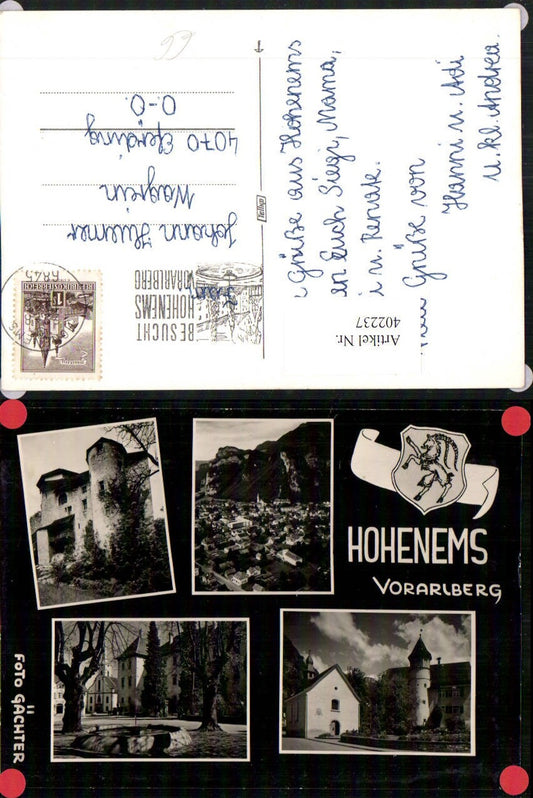 Grüße aus Hohenems
Euch Siegi, Mama,
u. Renate.
Grüße von
Hanni u. Adi
u. kl. Andrea.
Artikel Nr.
402237
BESUCHT
HOHENEMS
VORARLBERG
6845
REPUBLIK ÖSTERREICH
Johann
Wagrein
4070 Eferding
O.-Ö.
HOHENEMS
VORARLBERG
FOTO GÄCHTER